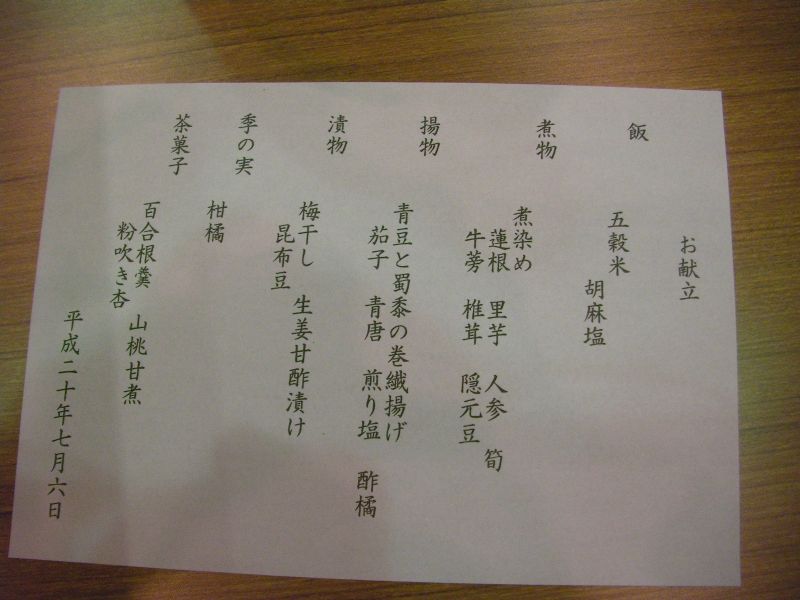 お献立
飯
五穀米
胡麻塩
煮物
煮染め
蓮根　里芋　人参　筍
牛蒡　椎茸　隠元豆
揚物
青豆と蜀黍の巻繊揚げ
茄子　青唐　煎り塩　酢橘
漬物
梅干し　生姜甘酢漬け
昆布豆
季の実
柑橘
茶菓子
百合根羹　山桃甘煮
粉吹き杏
平成二十年七月六日